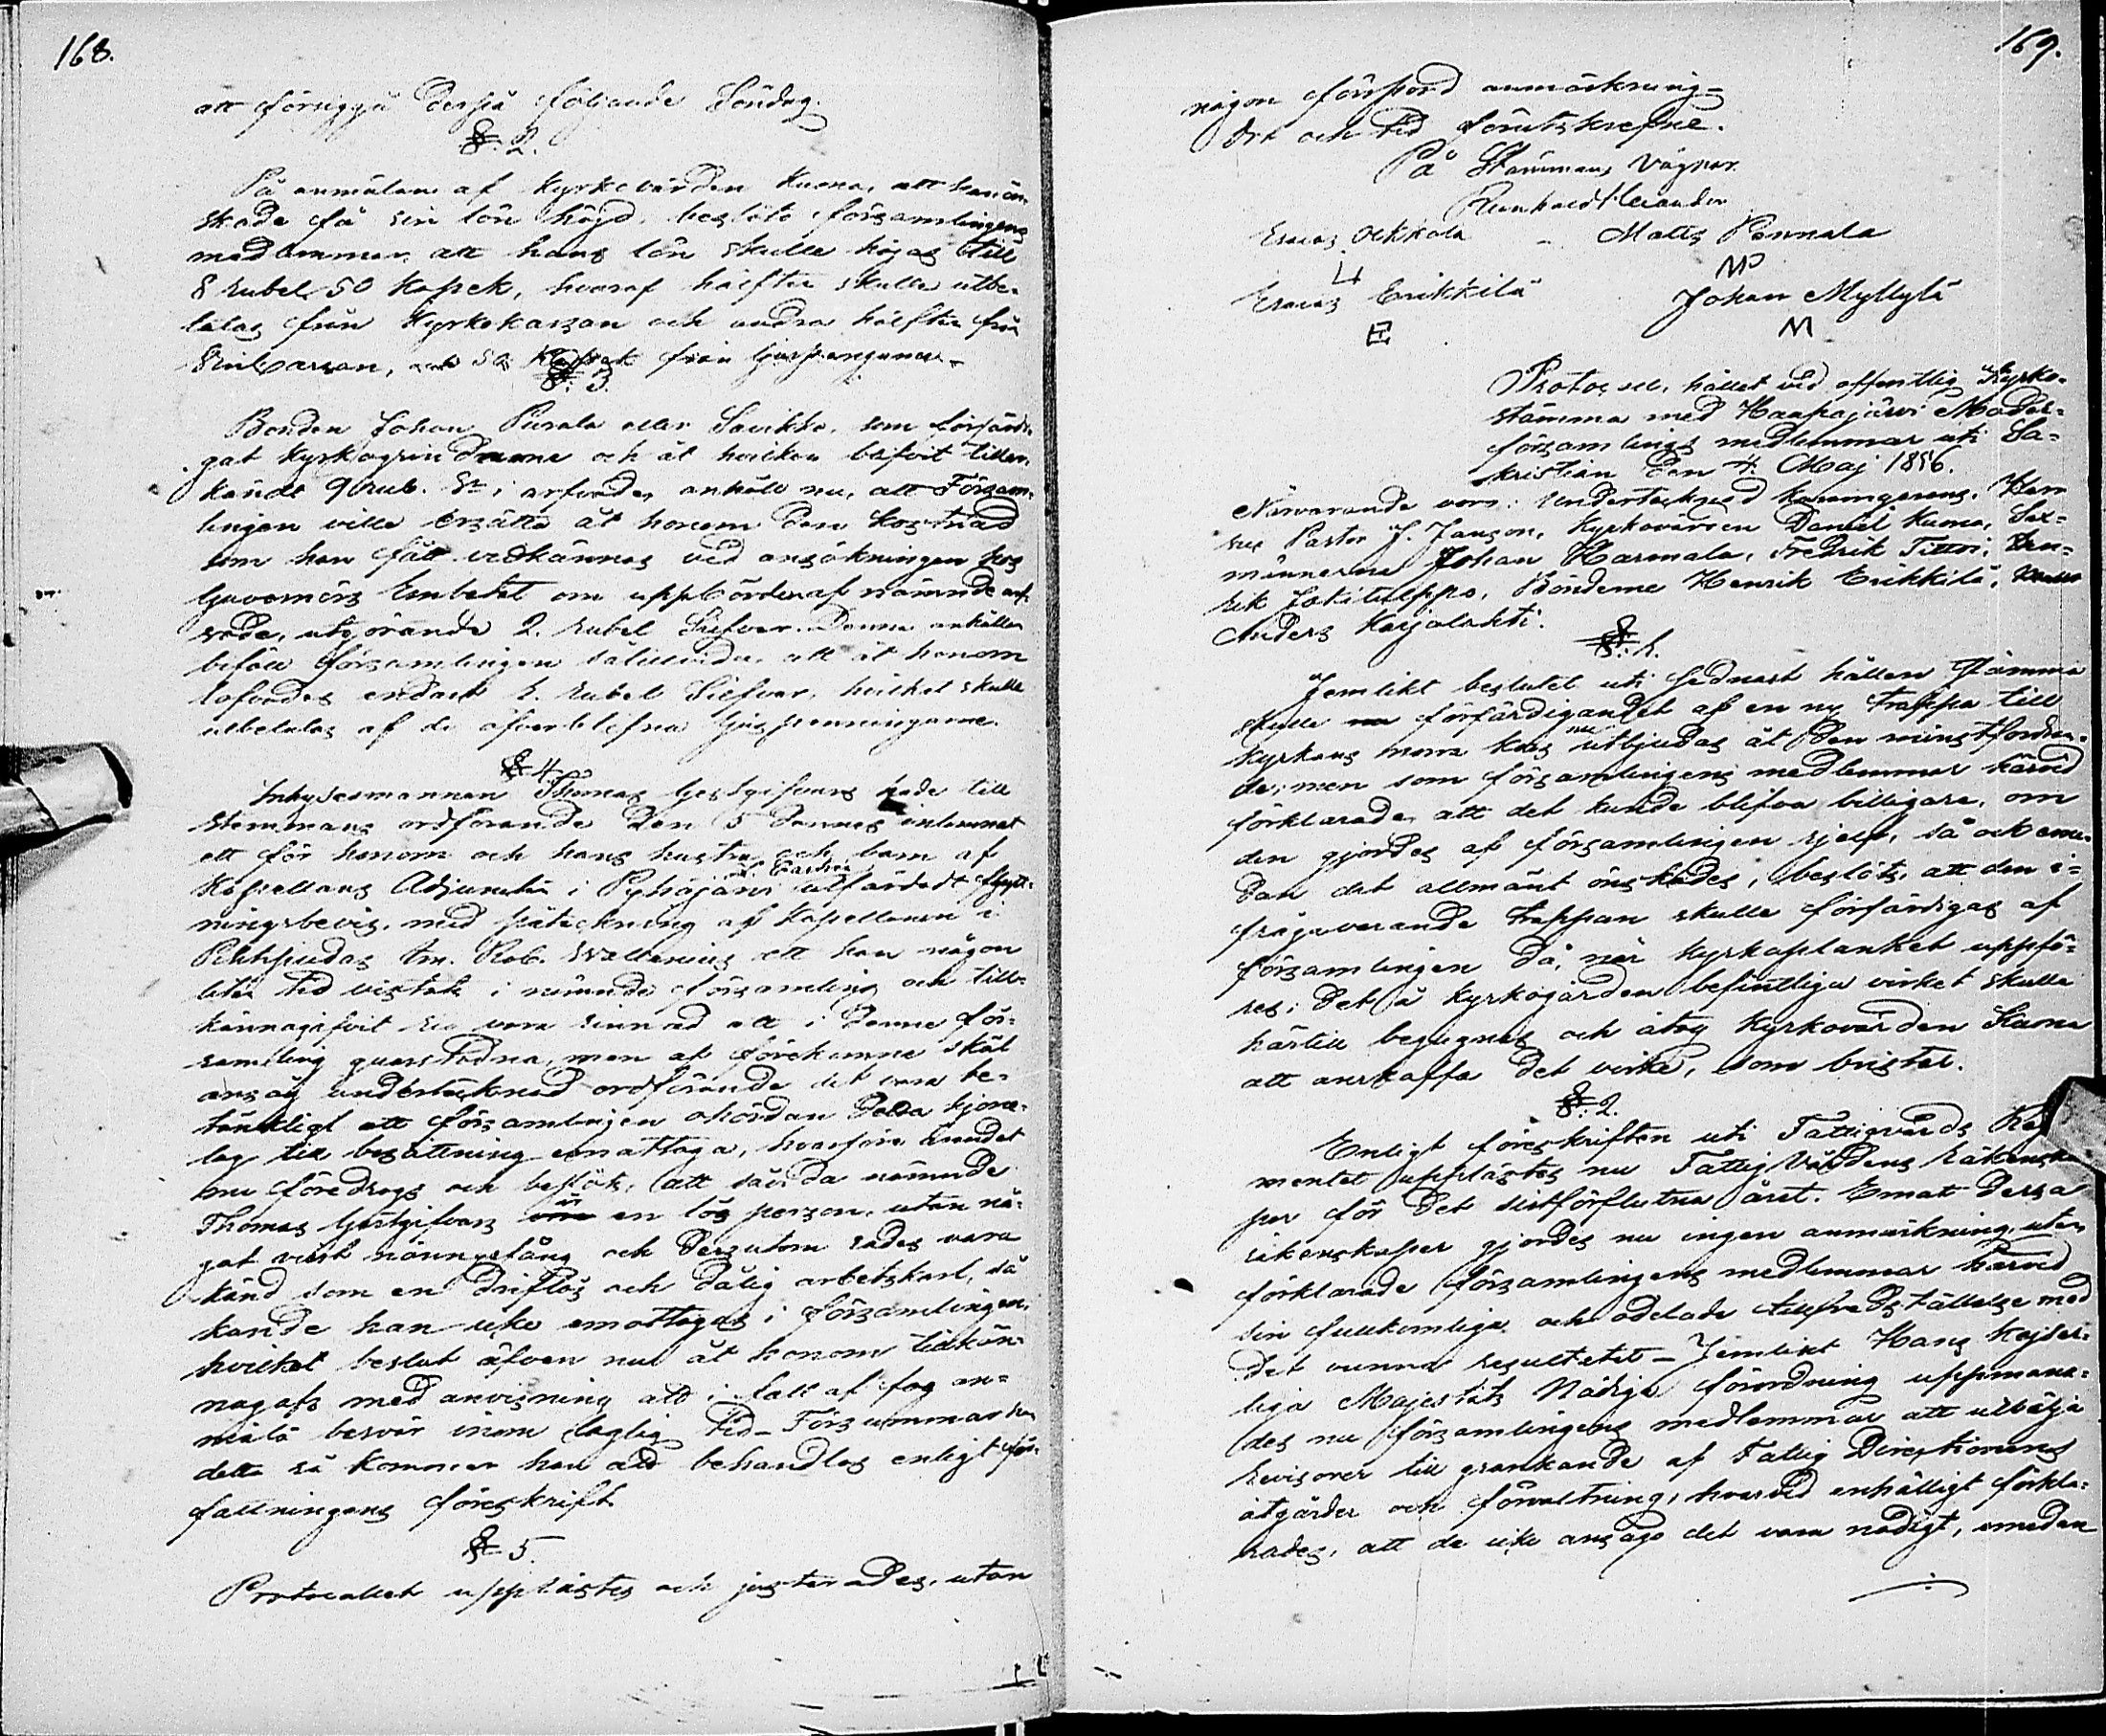 168.
att föregå derpå följande Söndag.
§. 2.
På anmälan af Kyrkovärden Kuona, att han ön-
skade få sin lön höjd, beslöto församlingens
medlemmar att hans lön skulle höjas till
8 Rubel 50 Kopek, hvaraf hälften skulle utbe-
talas från Kyrkokassan och andra hälften från
cassan, och 50 Kopek från ljuspengarna.
§. 3.
Bonden Johan Purala eller Savikko, som förfärdi-
gat Kyrkogrindarne och åt hvilken blifvit tiller-
kändt 9 Rub. Sr i arfvode, anhöll nu, att Försam-
lingen ville ersätta åt honom den kostnad
som han fått vidkännas vid ansökningen hos
Guvernörs Embetet om uppbörden af nämnde arf-
vode, utgörande 2. Rubel Silfver. Denna anhållan
biföll församlingen sålunda, att åt honom
lofvades endast 1. Rubel Silfver, hvilket skulle
utbetalas af de öfverblifna ljuspenningarne.
§ 4.
Inhysesmannen Thomas Gestgifvars hade till
stemmans ordförande den 5 dennes inlemnat
ett för honom och hans hustru och barn af
Kapellans Adjuncten i Pyhäjärvi utfärdadt flytt-
ningsbevis, med påteckning af Kapellanen i
Pihtipudas hr. Rob. Wallenius att han någon
liten tid vistats i nämnde församling och till-
kännagifvit sig vara sinnad att i denne för-
samling qvarstadna, men af förekomne skäl
ansåg undertecknad ordförande det vara be-
tänkligt att församlingen ohördan detta hjone-
lag till besittning emottaga, hvarföre ämnet
nu föredrogs och beslöts, att såvida nämnde
Thomas Gestgifvars är en lös person, utan nå-
got visst näringsfång och dessutom sades vara
känd som en driflös och dålig arbetskarl, så
kunde han icke emottagas i församlingen,
hvilket beslut äfven nu åt honom tillkän-
nagafs med anvisning att i fall af fog an-
mäla besvär inom laglig tid – Försummar han
detta så kommer han att behandlas enligt för-
fattningens föreskrift.
§ 5.
Protocollet upplästes och justerades, utan
169.
någon försord anmärkning –
Ort och tid förutskrefne.
På Stämmans vägnar.
Reinhold Helander
Esaias Okkola – Matts Pennala
Esaias Erikkilä Johan Myllylä
E M
Protocoll, hållet vid offentlig Kyrko-
stämma med Haapajärvi Moder-
församlings medlemmar uti Sa-
kristian den 4. Maj 1856.
Närvarande voro: Undertecknad Herr
Pastor J. Janson, Kyrkovärden Daniel Kuona, Sex-
männerne Johan Harmala, Fredrik Tittoi, Hen-
rik Jokitulppo, Bönderne Henrik Erikkilä,
Anders Karjalahti.
§. 1.
Jemlikt beslutet uti sednast hållen Stämma
skulle förfärdigandet af en ny trappa till
kyrkans norra kors nu utbjudas åt den minstfordran-
de, men som församlingens medlemmar härvid
förklarade, att det kunde blifva billigare, om
den gjordes af församlingen sjelf, så ock eme-
dan det allmänt önskades, beslöts, att den i-
frågavarande trappan skulle förfärdigas af
församlingen då, när kyrkoplanket uppfö-
res; det å kyrkogården befintliga virket skulle
härtill begagnas och åtog Kyrkovärden Kuona
att anskaffa det virke, som brister.
§. 2.
Enligt föreskriften uti Fattigvårds
mentet upplästes nu Fattig Vårdens räkenska-
per för det sistförflutna året. Emot dessa
räkenskaper gjordes nu ingen anmärkning, utan
förklarade församlingens medlemmar härvid
sin fullkomliga och odelade tillfredsställelse med
det vunna resultatet – Jemlikt Hans Kejser-
liga Majestäts Nådiga förordning uppmana-
des nu församlingens medlemmar att utvälja
revisorer till granskande af Fattig Directionens
åtgärder och förvaltning, hvarvid enhälligt förkla-
rades, att de icke ansågo det vara nödigt, emedan